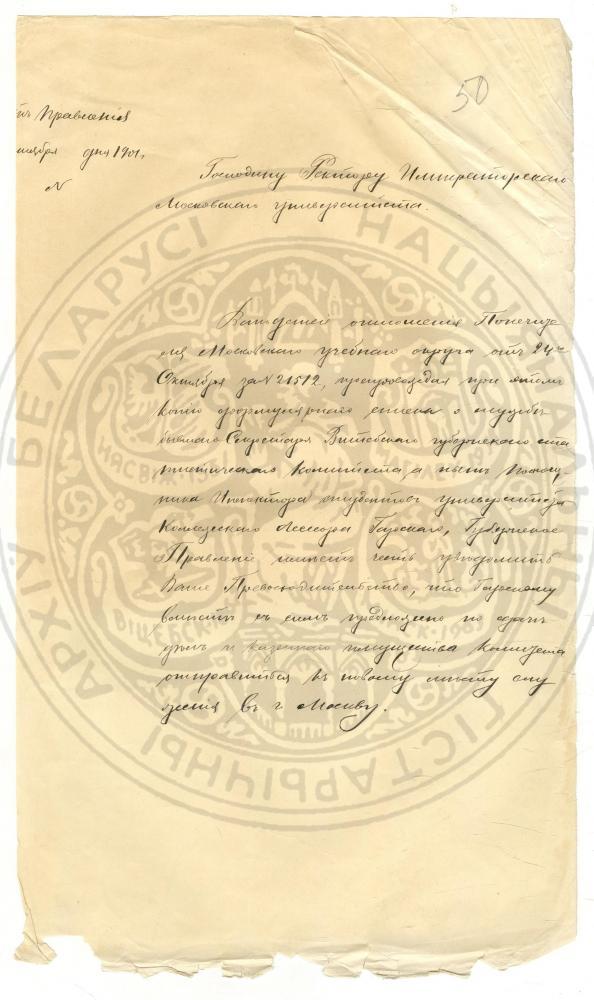 50
Правленія
дня 1901 г.
N
Господину Ректору Императорскаго
Московскаго университета.
Вслѣдствіе отношенія Попечите
ля Московскаго учебнаго округа отъ 24го
Октября за № 21512, препровождая при этомъ
копію формулярнаго списка о службѣ
бывшаго Секретаря Витебскаго губернскаго ста
тистическаго Комитета, а нынѣ Помощ
ника Инспектора студентовъ университета
Коллежскаго Ассесора Губернское
Правленіе имѣетъ честь увѣдомить
Ваше Превосходительство, что
вмѣстѣ съ симъ предложено по сдачѣ
дѣлъ и казеннаго имущества Комитета
отправиться къ новому мѣсту слу
женія въ г. Москву.
НАЦЫЯНАЛЬНЫ ГІСТАРЫЧНЫ АРХІЎ БЕЛАРУСІ